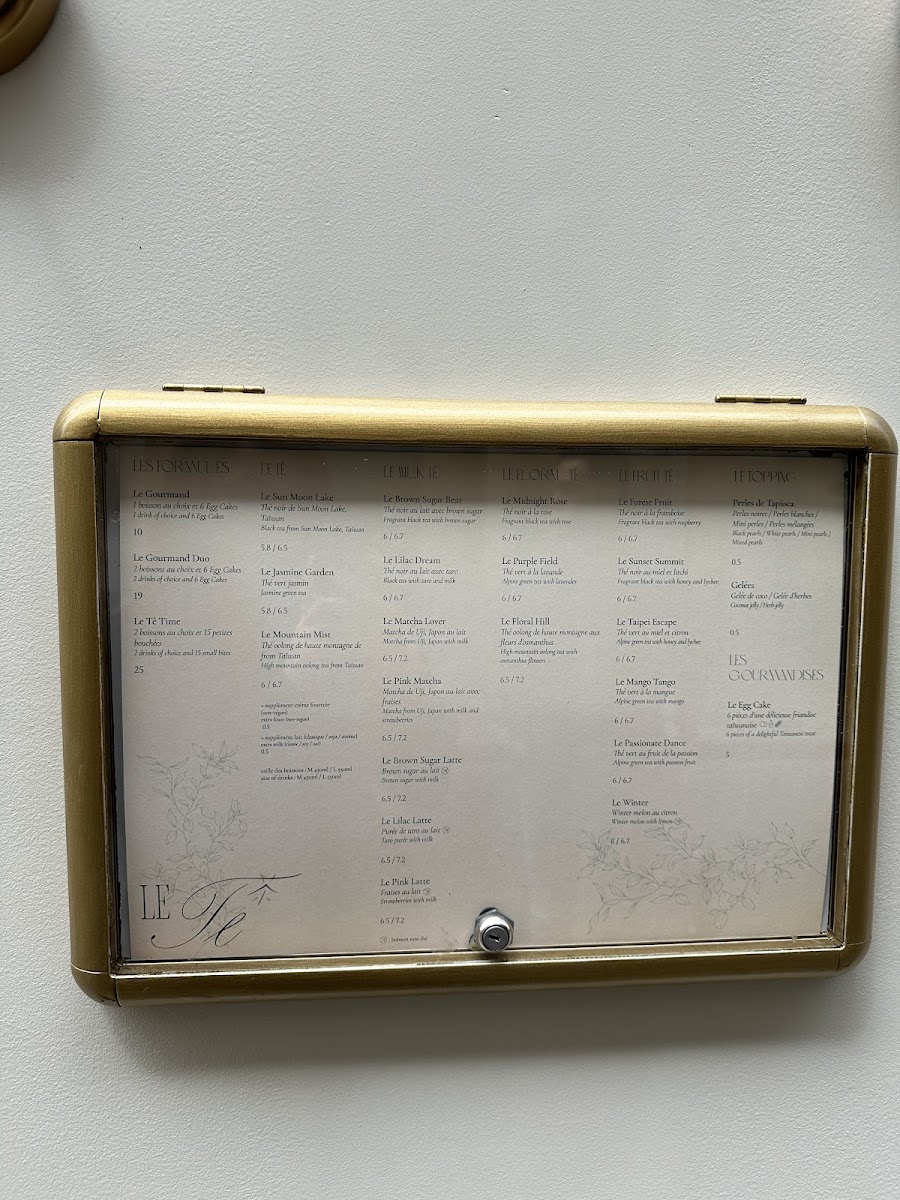 LES FORMULES
Le Gourmand
1 boisson au choix et 6 Egg Cakes
1 drink of choice and 6 Egg Cakes
10
Le Gourmand Duo
2 boissons au choix et 6 Egg Cakes
2 drinks of choice and 6 Egg Cakes
19
Le Tè Time
2 boissons au choix et 15 petites
bouchées
2 drinks of choice and 15 small bites
25
LE TÈ
Le Sun Moon Lake
Thé noir de Sun Moon Lake,
Taïwan
Black tea from Sun Moon Lake, Taiwan
5.8 / 6.5
Le Jasmine Garden
Thé vert jasmin
Jasmine green tea
5.8 / 6.5
Le Mountain Mist
Thé oolong de haute montagne de
from Taïwan
High mountain oolong tea from Taiwan
6 / 6.7
+ supplément crème fouettée
(non-vegan)
extra foam (non-vegan)
0.5
+ supplément lait (classique / soja / avoine)
extra milk (classic / soy / oat)
0.5
taille des boissons : M 450ml / L 550ml
size of drinks : M 450ml / L 550ml
LE MILK TÈ
Le Brown Sugar Bear
Thé noir au lait avec brown sugar
Fragrant black tea with brown sugar
6 / 6.7
Le Lilac Dream
Thé noir au lait avec taro
Black tea with taro and milk
6 / 6.7
Le Matcha Lover
Matcha de Uji, Japon au lait
Matcha from Uji, Japan with milk
6.5 / 7.2
Le Pink Matcha
Matcha de Uji, Japon au lait avec
fraises
Matcha from Uji, Japan with milk and
strawberries
6.5 / 7.2
Le Brown Sugar Latte
Brown sugar au lait
Brown sugar with milk
6.5 / 7.2
Le Lilac Latte
Purée de taro au lait
Taro purée with milk
6.5 / 7.2
Le Pink Latte
Fraises au lait
Strawberries with milk
6.5 / 7.2
: boisson sans thé
LE FLORAL TÈ
Le Midnight Rose
Thé noir à la rose
Fragrant black tea with rose
6 / 6.7
Le Purple Field
Thé vert à la lavande
Alpine green tea with lavender
6 / 6.7
Le Floral Hill
Thé oolong de haute montagne aux
fleurs d'osmanthus
High mountain oolong tea with
osmanthus flowers
6.5 / 7.2
LE FRUIT TÈ
Le Forest Fruit
Thé noir à la framboise
Fragrant black tea with raspberry
6 / 6.7
Le Sunset Summit
Thé noir au miel et litchi
Fragrant black tea with honey and lychee
6 / 6.7
Le Taipei Escape
Thé vert au miel et citron
Alpine green tea with honey and lychee
6 / 6.7
Le Mango Tango
Thé vert à la mangue
Alpine green tea with mango
6 / 6.7
Le Passionate Dance
Thé vert au fruit de la passion
Alpine green tea with passion fruit
6 / 6.7
Le Winter
Winter melon au citron
Winter melon with limon
6 / 6.7
LE TOPPING
Perles de Tapioca
Perles noires / Perles blanches /
Mini perles / Perles mélangées
Black pearls / White pearls / Mini pearls /
Mixed pearls
0.5
Gelées
Gelée de coco / Gelée d'herbes
Coconut jelly / Herb jelly
0.5
LES
GOURMANDISES
Le Egg Cake
6 pièces d'une délicieuse friandise
taïwanaise
6 pieces of a delightful Taiwanese treat
5
LE Tè 茶